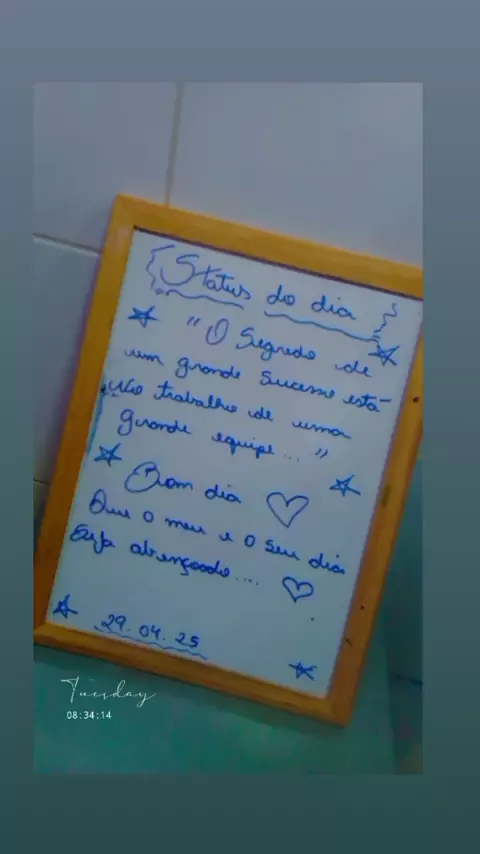 Status do dia
"O Segredo de
um grande sucesso está
No trabalho de uma
grande equipe..."
Bom dia
Que o meu e o seu dia
Seja abençoado....
29.04.25
Tuesday
08:34:14